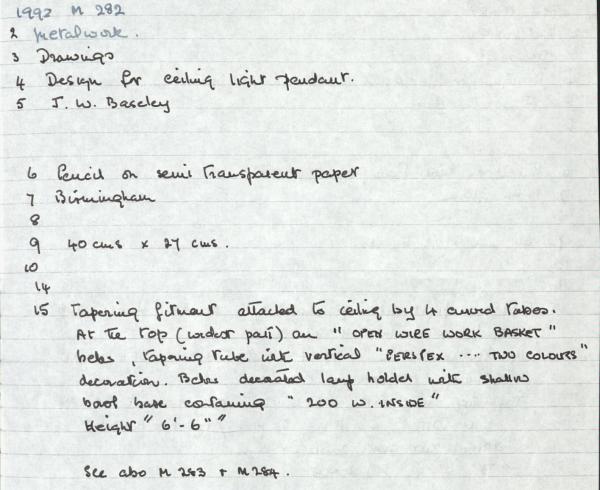 1992 M 282
2 Metalwork.
3 Drawings
4 Design for ceiling light pendant.
5 J. W. Baseley
6 Pencil on semi transparent paper
7 Birmingham
8
9 40 cms x 27 cms.
10
14
15 Tapering fitment attached to ceiling by 4 curved tubes.
At the top (widest part) an "OPEN WIRE WORK BASKET"
below, tapering tube with vertical "PERSPEX .... TWO COLOURS"
decoration. Below decorated lamp holder with shallow
bowl base containing "200 W. INSIDE"
Height "6'-6""
See also M 283 + M 284.